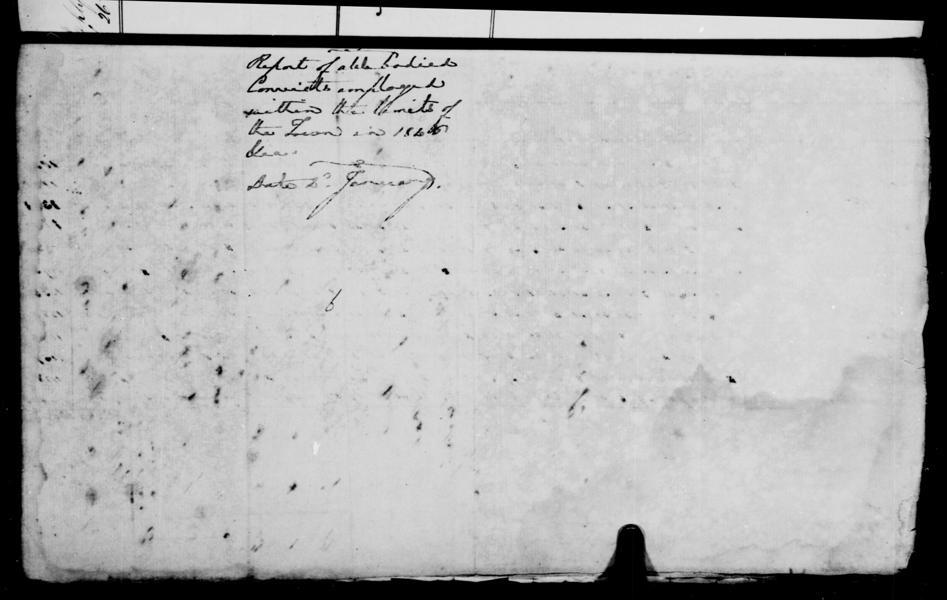 Report of able bodied
Convicts employed
within the limits of
the Town in 184
Dated 2d. January.
6